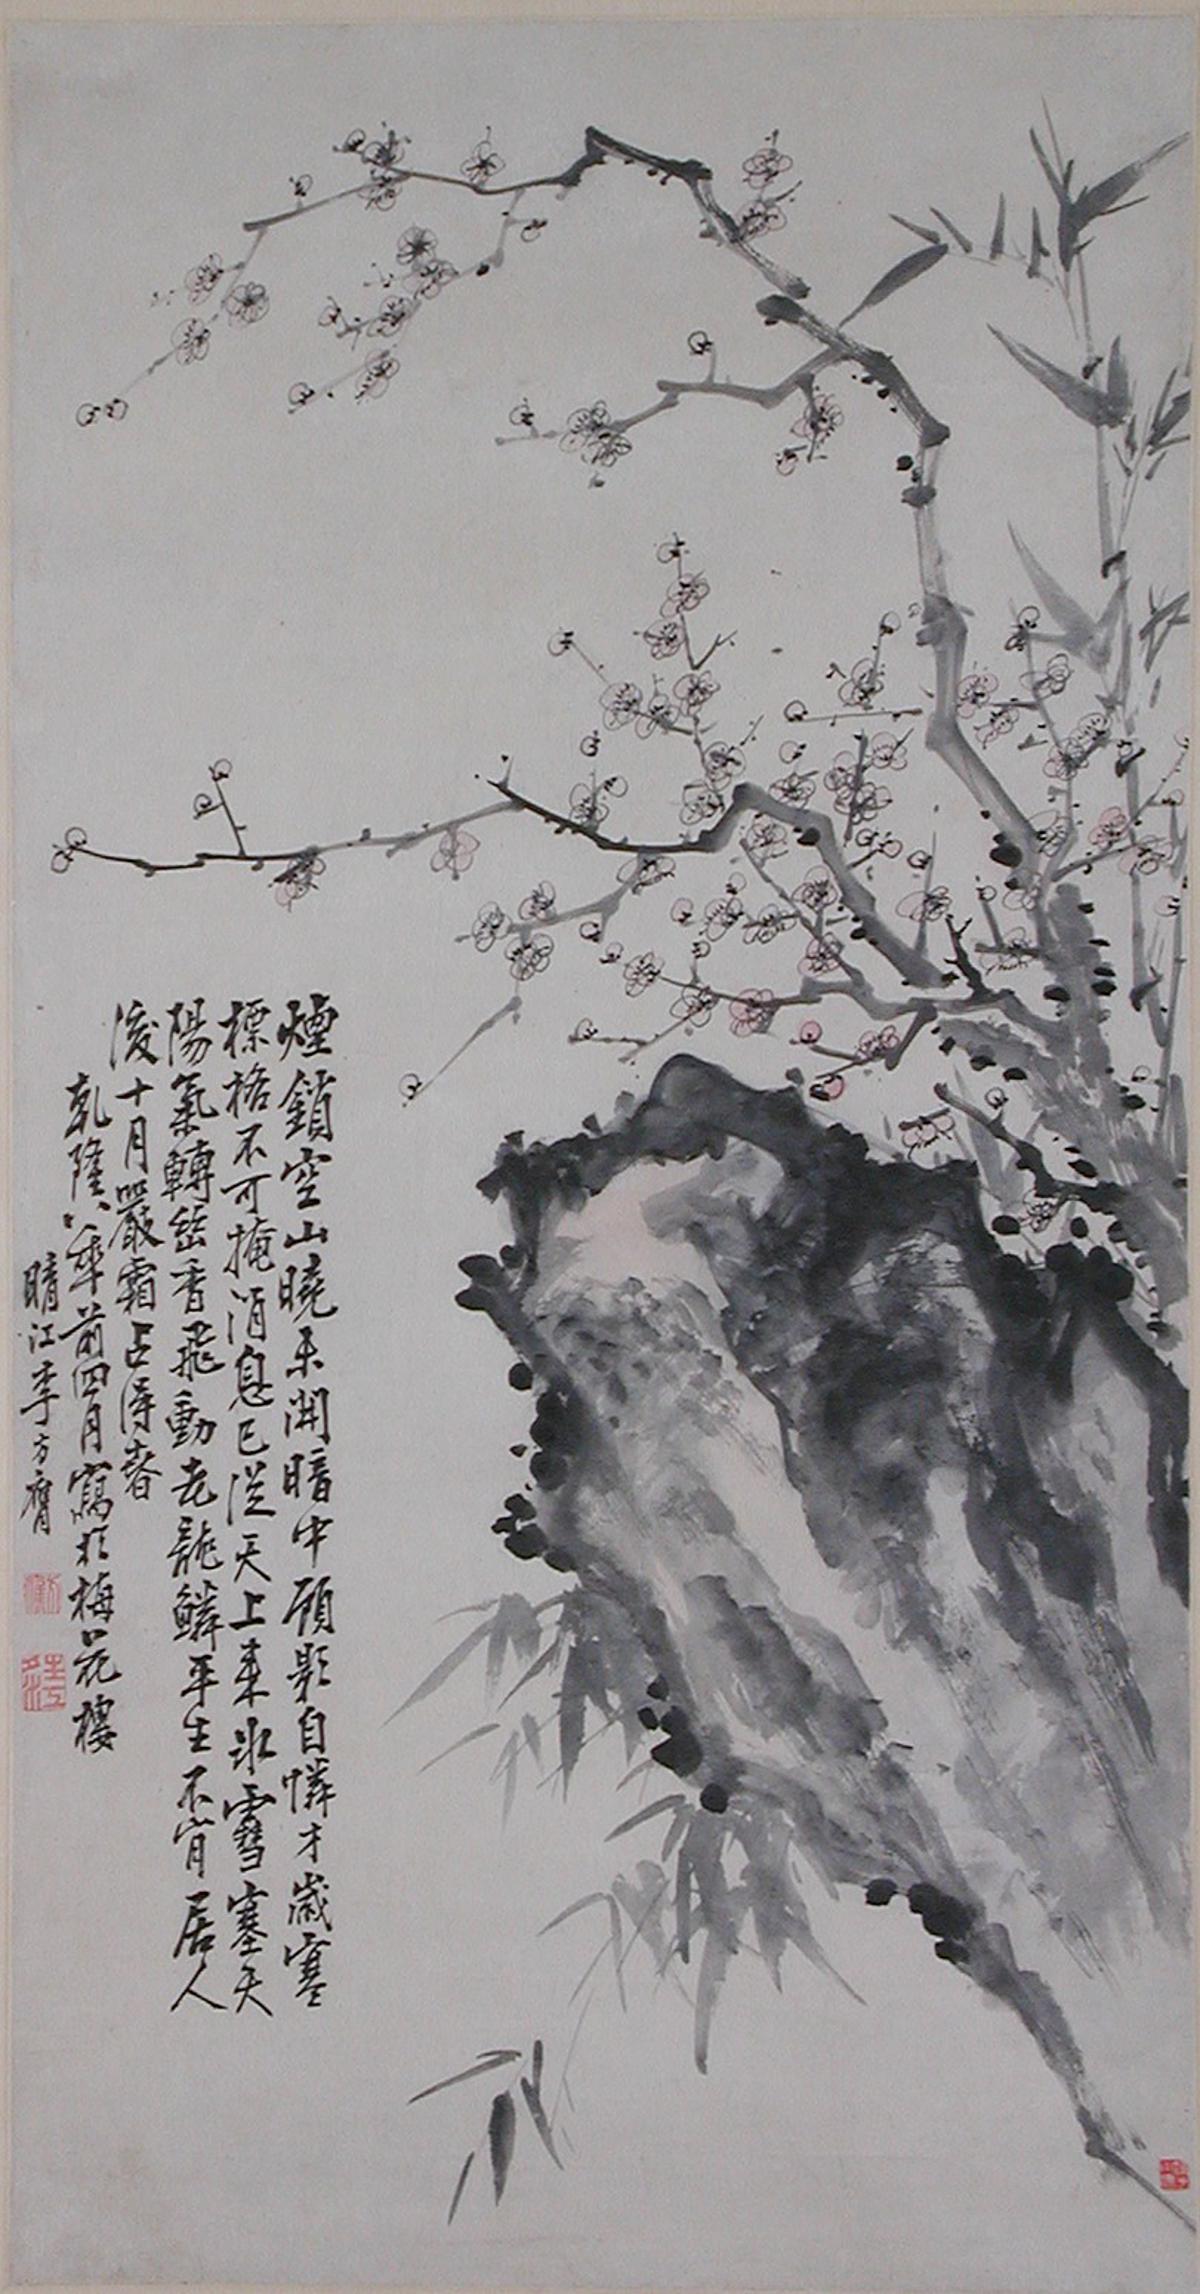 煙鎖空山曉未開暗中顧影自憐才歲寒
標格不可掩消息已從天上來冰雪塞天
陽氣轉幽香飛動老龍鱗平生不肯居人
後十月嚴霜占得春
乾隆八年前四月寫於梅花樓
晴江李方膺